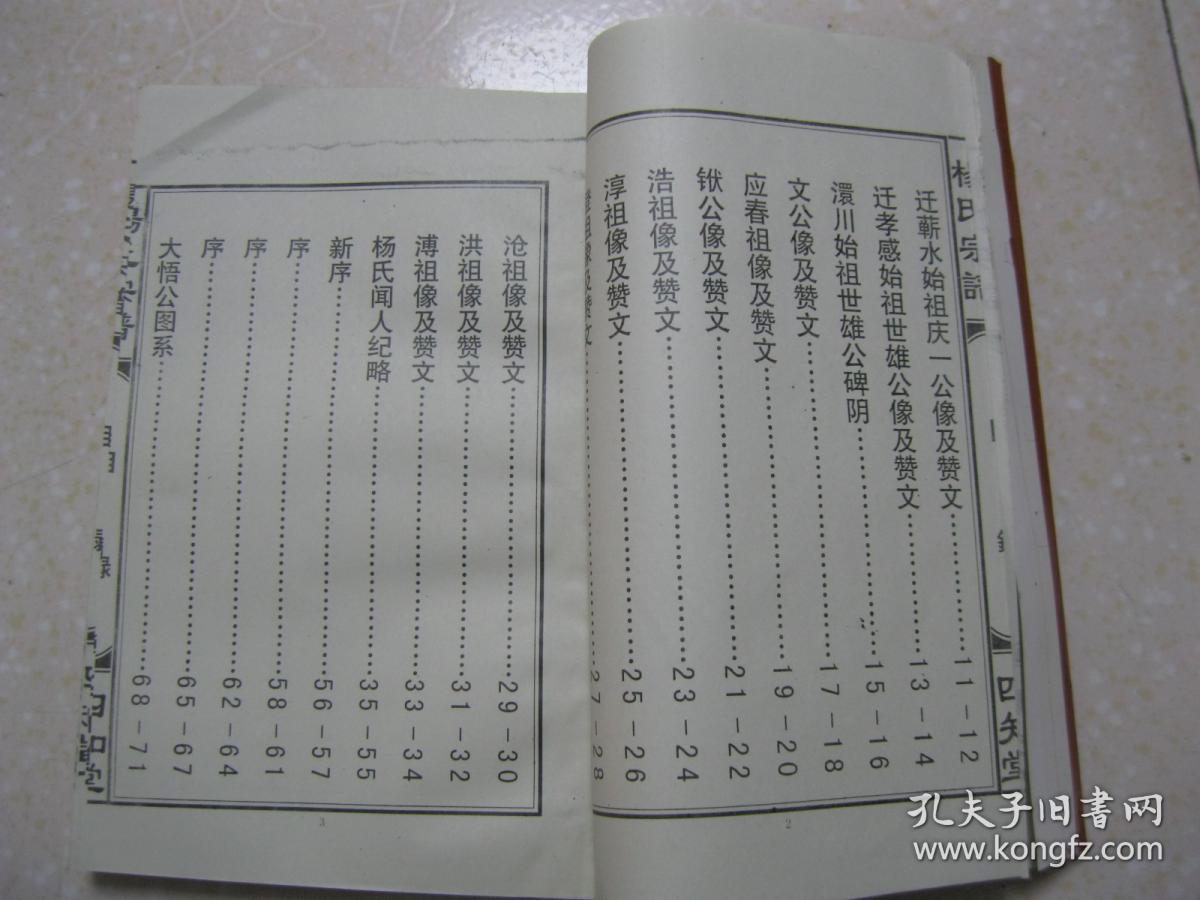 杨氏宗谱
迁蕲水始祖庆一公像及赞文……11-12
迁孝感始祖世雄公像及赞文……13-14
澴川始祖世雄公碑阴……15-16
文公像及赞文……17-18
应春祖像及赞文……19-20
铁公像及赞文……21-22
浩祖像及赞文……23-24
淳祖像及赞文……25-26
祖像及赞文……27-28
四知堂
2
沧祖像及赞文……29-30
洪祖像及赞文……31-32
溥祖像及赞文……33-34
杨氏闻人纪略……35-55
新序……56-57
序……58-61
序……62-64
序……65-67
大悟公图系……68-71
3
孔夫子旧书网
www.kongfz.com